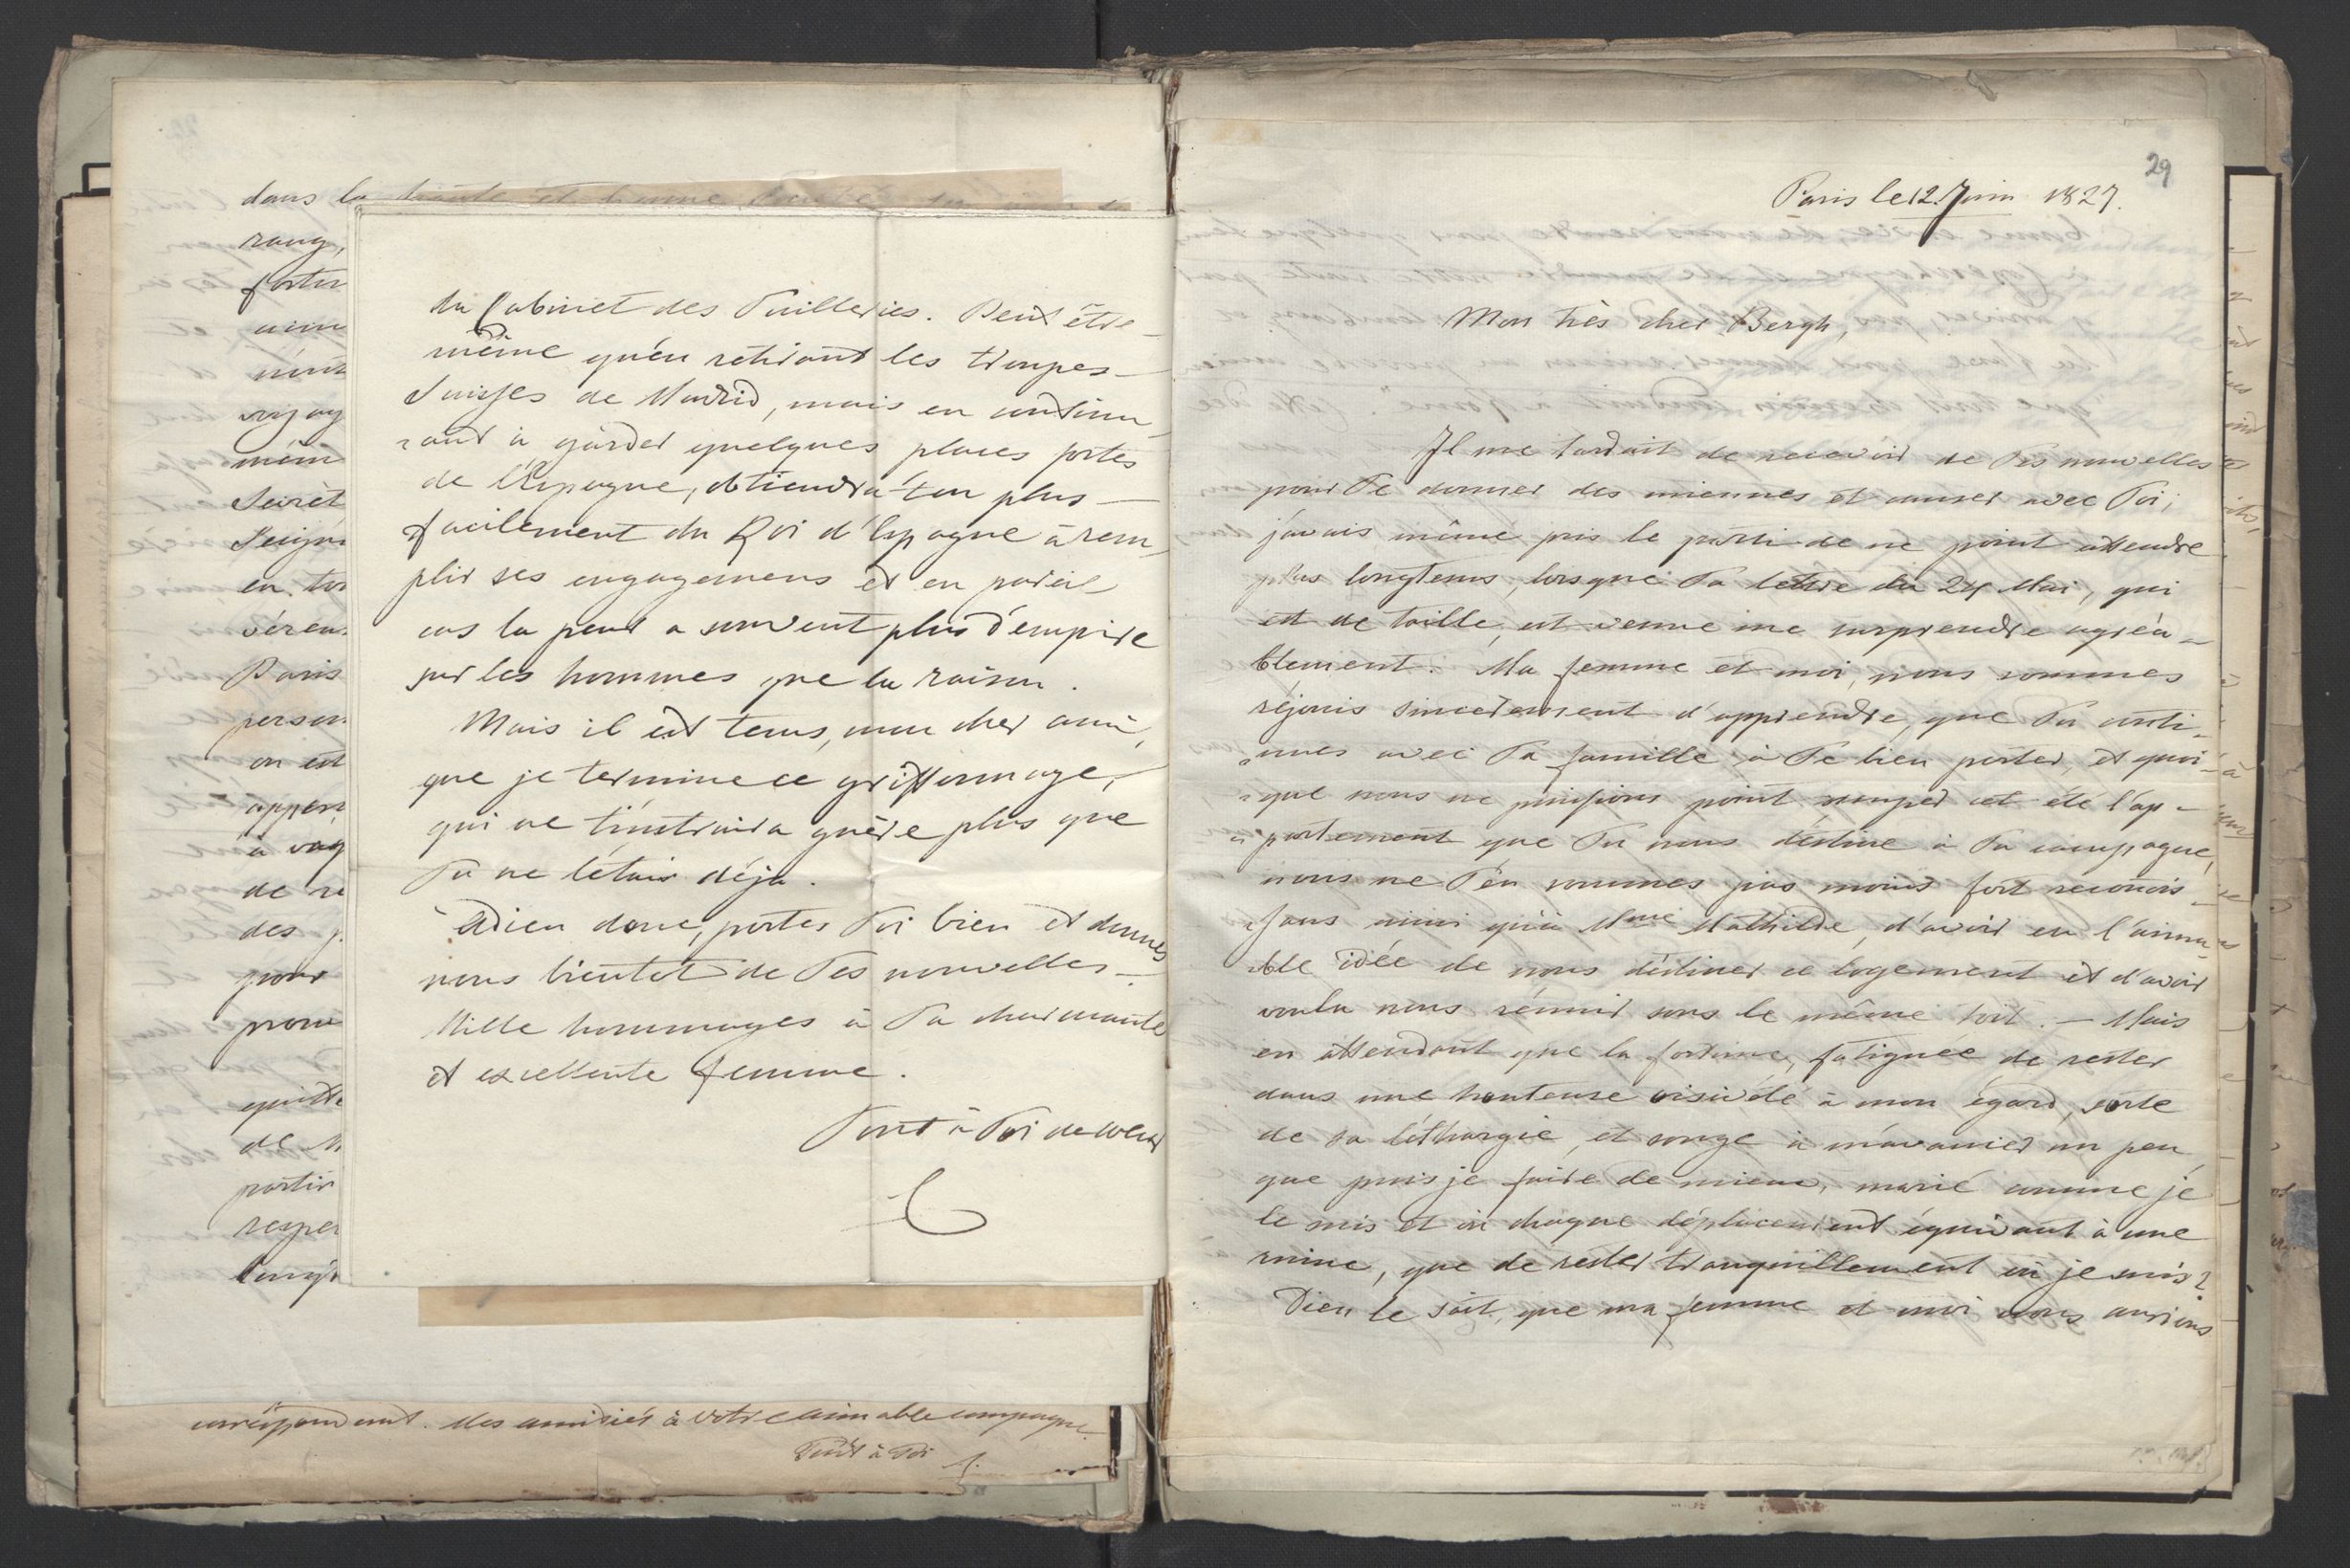 dans la haute et bonne
rang,
forten
aim
voyag
mêm
Secrét
Seign
en tor
Paris
person
on est
appart
à voy
de re
des p
pour
prom
quitt
de M
partir
respe
longt
du Cabinet des Tuilleries. Peut être
même qu'en retirant les troupes
Suisses de Madrid, mais en continu
-ant à garder quelques places fortes
de l'Espagne, obtiendra-t'on plus
facilement du Roi d'Espagne à rem
plir ses engagemens et en pareil
cas la peur a souvent plus d'empire
sur les hommes que la raison.
Mais il est tems, mon cher ami,
que je termine ce griffonnage,
qui ne t'instruira guère plus que
Tu ne l'étais déja.
Adieu donc, portes Toi bien et donnes
nous bientot de Tes nouvelles.
Mille hommages à Ta charmante
et excellente femme.
Tout à Toi de coeur
correspondant. Mes amitiés à votre aimable compagne.
Tout à Toi
29
Paris le 12. Juin 1827.
Mon très cher Bergh,
Il me tardait de recevoir de Tes nouvelles
pour Te donner des miennes et causer avec Toi;
j'avais même pris le parti de ne point attendre
plus longtems, lorsque Ta lettre du 24 Mai, qui
est de taille, est venue me surprendre agréa-
blement. Ma femme et moi, nous sommes
réjouis sincèrement d'apprendre, que Tu conti-
-nues avec Ta famille à Te bien porter, et quoi-
-que nous ne puissions point occuper cet été l'ap-
-partement que Tu nous destine à Ta campagne,
nous ne T'en sommes pas moins fort reconois-
-sans ainsi qu'à Mme Mathilde, d'avoir eu l'aima-
-ble idée de nous destiner ce logement et d'avoir
voulu nous réunir sous le même toit. — Mais
en attendant que la fortune, fatiguée de rester
dans une honteuse oisiveté à mon égard, sorte
de sa léthargie, et songe à m'avancer un peu,
que puis je faire de mieux, marié comme je
le suis et où chaque déplacement équivaut à une
ruine, que de rester tranquillement où je suis?
Dieu le sait, que ma femme et moi nous aurions